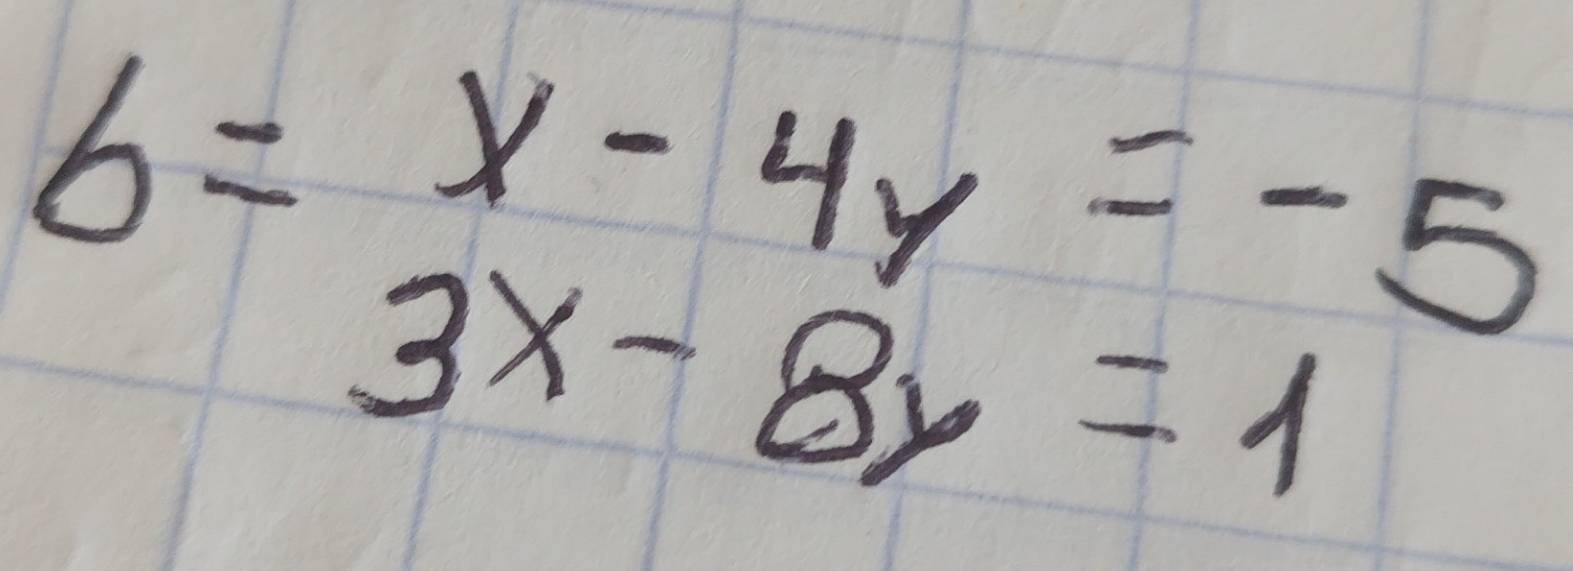 6= x - 4y = - 5
3x - 8y = 1